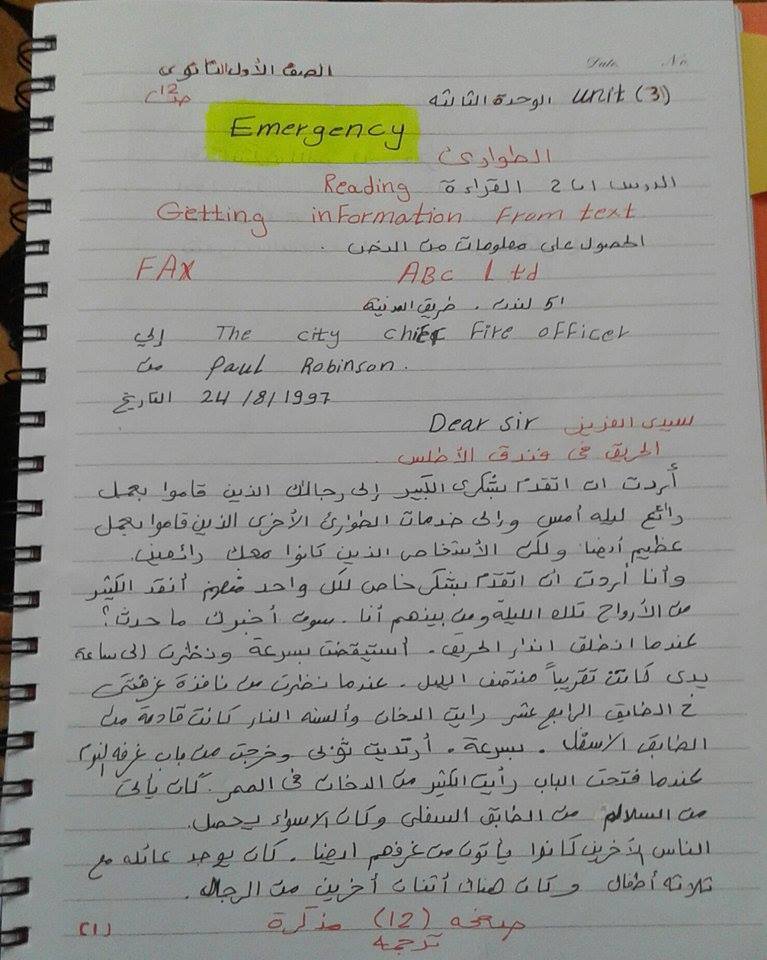 Date No
الصف الأول الثانوى
صـ12
الوحدة الثالثه unit (3)
Emergency
الطوارئ
الدرس 1 ، 2 القراءة Reading
Getting information From text
الحصول على معلومات من النص .
FAX ABC Ltd
51 لندن . طريق المدنية
إلي The city chief Fire officer
من Paul Robinson.
التاريخ 24/8/1997
Dear sir سيدى العزيز
الحريق فى فندق الأطلس
أردت ان اتقدم بشكرى الكبير إلى رجالك الذين قاموا بعمل
رائع ليله أمس وإلى خدمات الطوارئ الأخرى الذين قاموا بعمل
عظيم أيضا ولكن الأشخاص الذين كانوا معك رائعين.
وأنا أردت ان اتقدم بشكر خاص لكل واحد منهم أنقذ الكثير
من الأرواح تلك الليلة ومن بينهم أنا . سوف أخبرك ما حدث؟
عندما انطلق انذار الحريق . أستيقضت بسرعة ونظرت إلى ساعة
يدى كانت تقريباً منتصف الليل . عندما نظرت من نافذة غرفتى
في الطابق الرابع عشر رايت الدخان وألسنه النار كانت قادمة من
الطابق الاسفل . بسرعة . أرتديت ثوبى وخرجت من باب غرفه النوم
عندما فتحت الباب رأيت الكثير من الدخان فى الممر . كان يأتى
من السلالم من الطابق السفلى وكان الاسواء يحصل.
الناس الآخرين كانوا يأتون من غرفهم ايضا . كان يوجد عائله مع
ثلاثه أطفال وكان هناك أثنان أخرين من الرجال .
صفحه (12) مذكرة
ترجمة
(1)